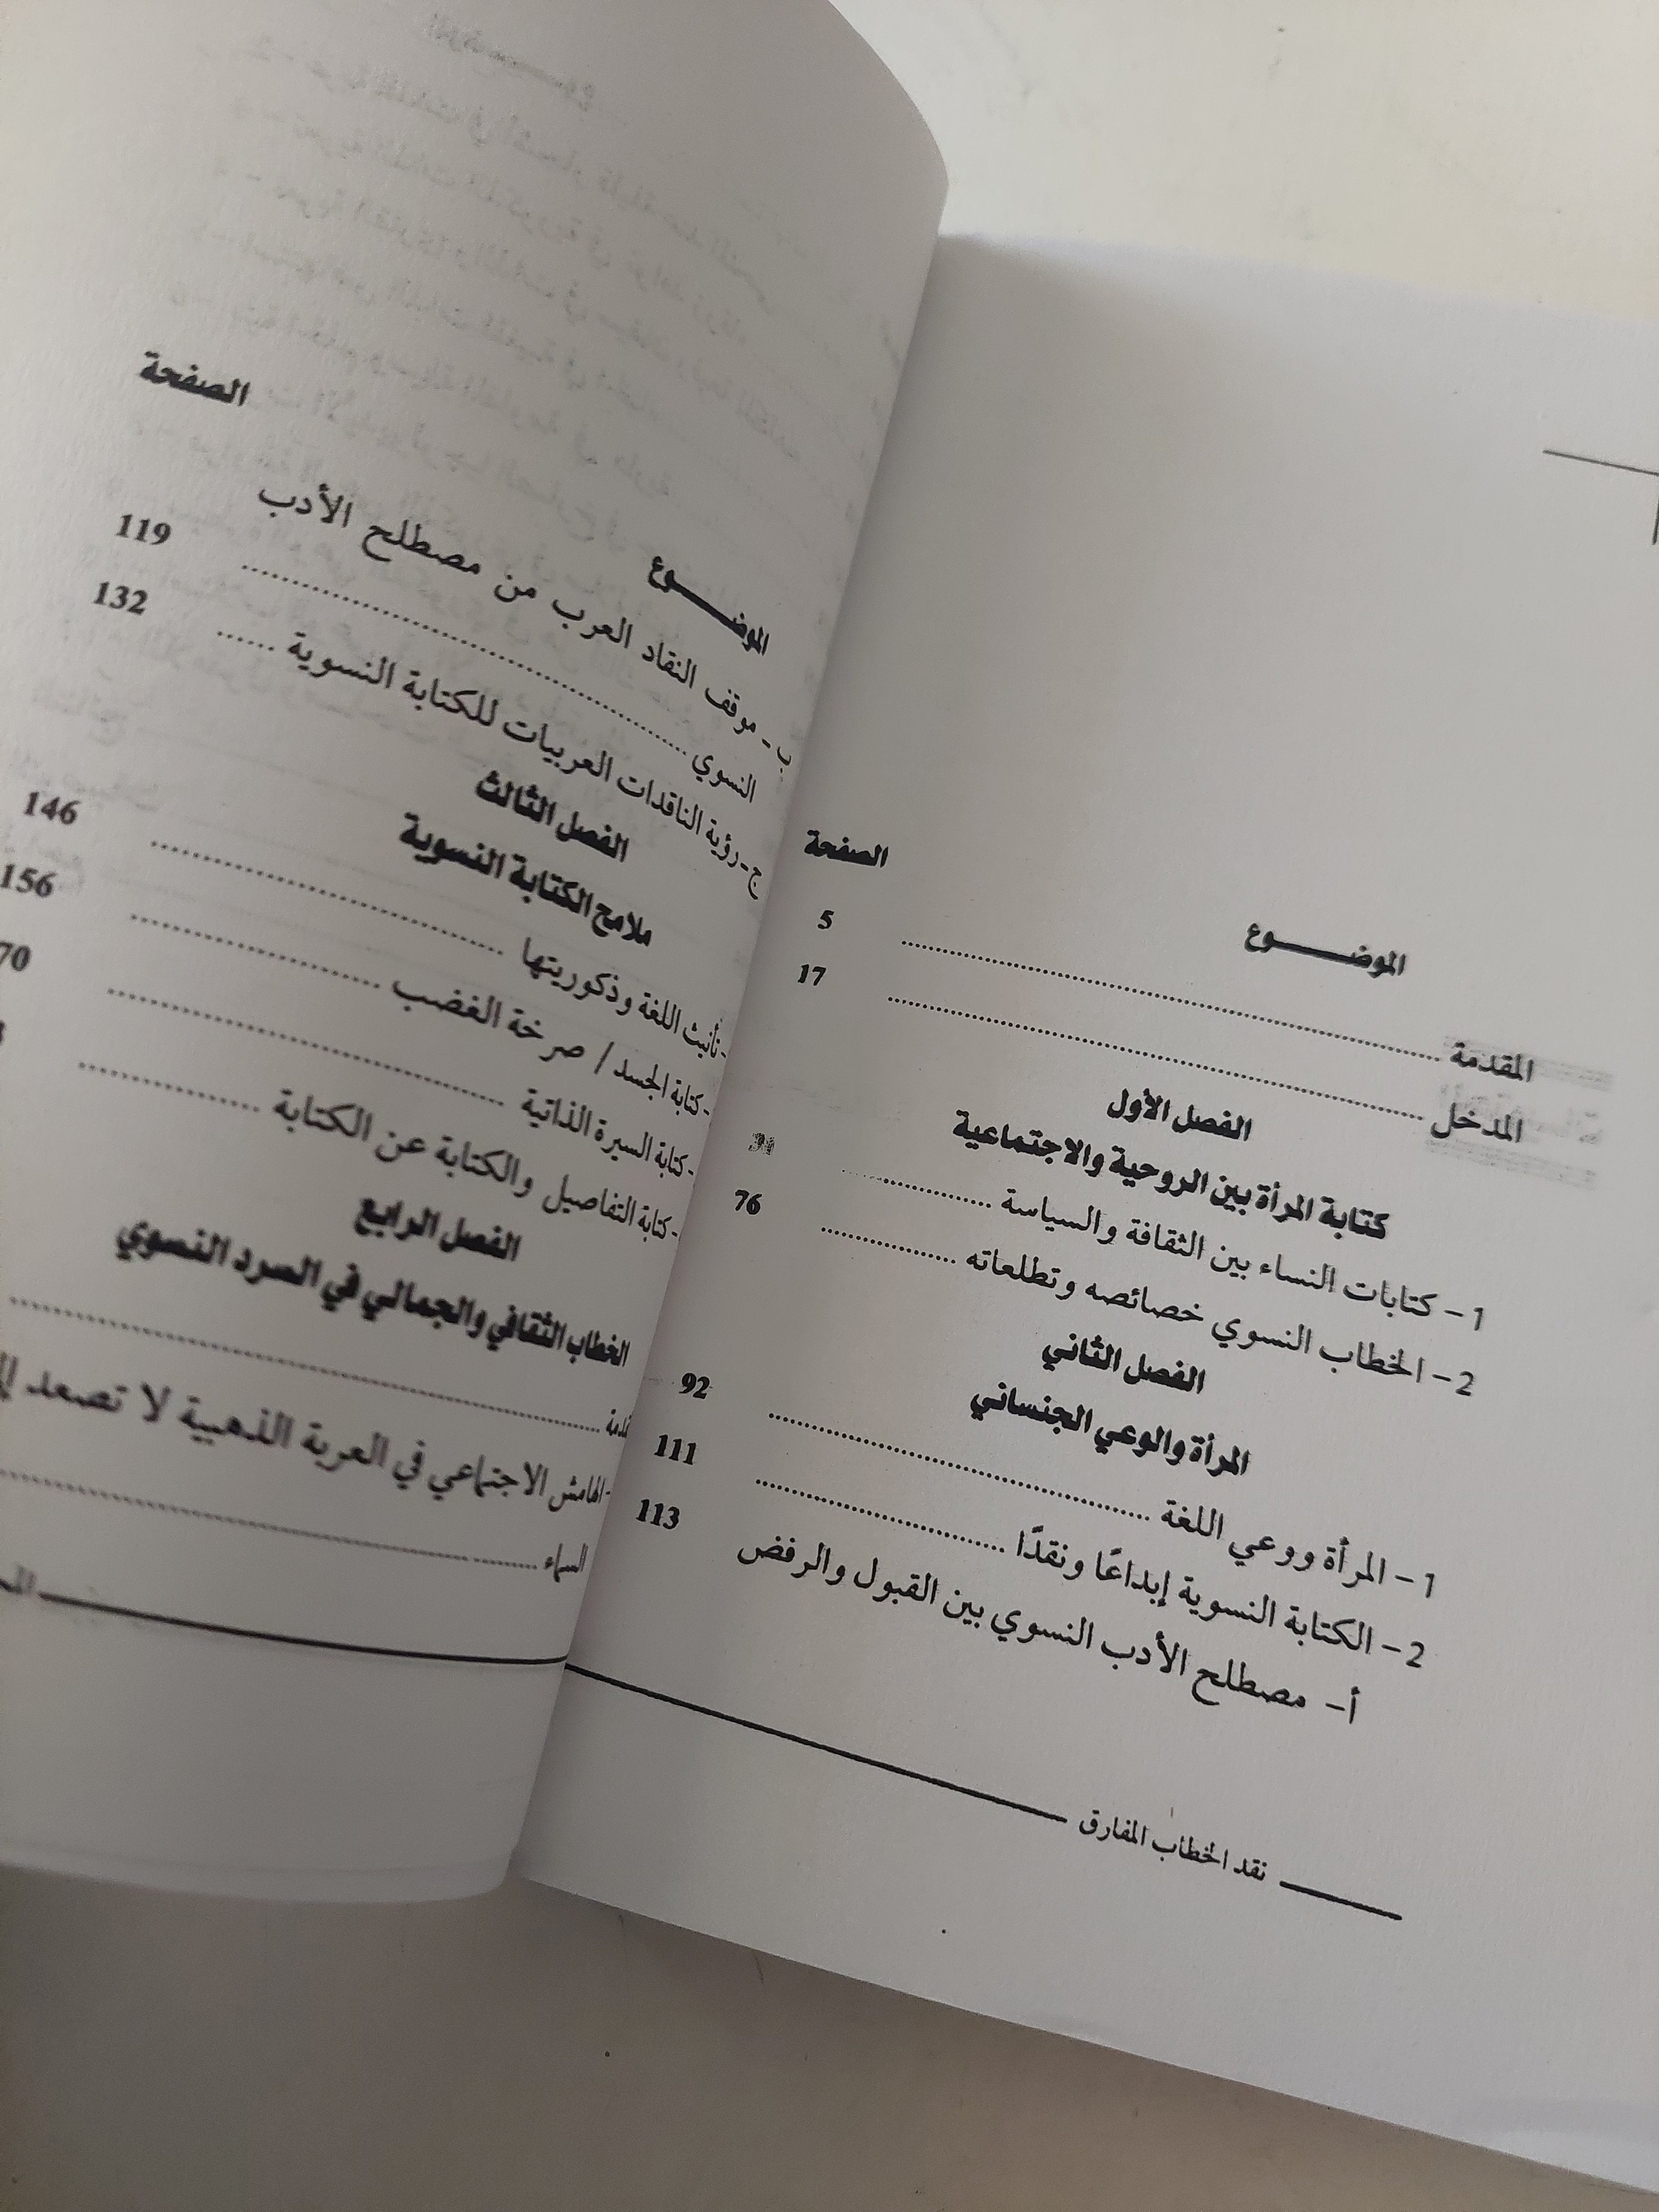 الموضـــوع الصفحة
المقدمة ........ 5
المدخل ........ 17
الفصل الأول
كتابة المرأة بين الروحية والاجتماعية
1 – كتابات النساء بين الثقافة والسياسة ........
2 – الخطاب النسوي خصائصه وتطلعاته ........ 76
الفصل الثاني
المرأة والوعي الجنساني
1 – المرأة ووعي اللغة ........ 92
2 – الكتابة النسوية إبداعًا ونقدًا ........ 111
أ– مصطلح الأدب النسوي بين القبول والرفض 113
نقد الخطاب المفارق
الموضـــوع الصفحة
ب - موقف النقاد العرب من مصطلح الأدب
النسوي ........ 119
ج - رؤية الناقدات العربيات للكتابة النسوية ...... 132
الفصل الثالث
ملامح الكتابة النسوية
- تأنيث اللغة وذكوريتها ........ 146
- كتابة الجسد / صرخة الغضب ........ 156
- كتابة السيرة الذاتية ........ 70
- كتابة التفاصيل والكتابة عن الكتابة ........
الفصل الرابع
الخطاب الثقافي والجمالي في السرد النسوي
- الهامش الاجتماعي في العربة الذهبية لا تصعد
السماء ........